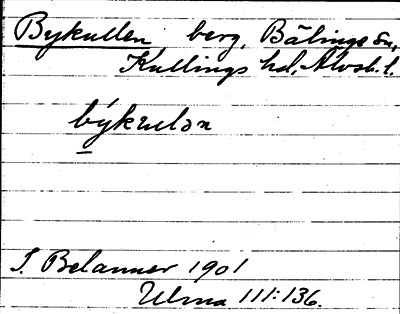 Bykullen berg, Bälinge sn,
Kullings hd, Älvsb. l.
býkuulən
S. Belanner 1901
Ulma 111:136.